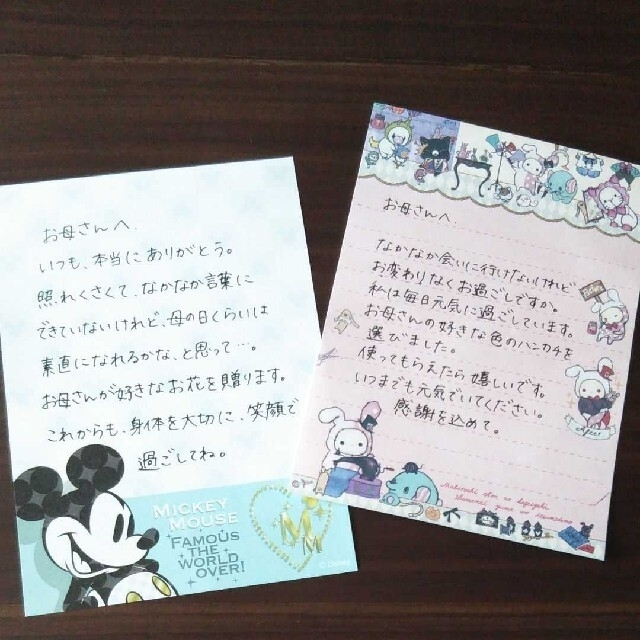 お母さんへ、
いつも、本当にありがとう。
照れくさくて、なかなか言葉に
できていないけれど、母の日くらいは
素直になれるかな、と思って…。
お母さんが好きなお花を贈ります。
これからも、身体を大切に、笑顔で
過ごしてね。
MICKEY
MOUSE
FAMOUS
THE
WORLD
OVER!
M
M
© Disney
お母さんへ、
なかなか会いに行けないけれど
お変わりなくお過ごしですか。
私は毎日元気に過ごしています。
お母さんの好きな色のハンカチを
選びました。
使ってもらえたら嬉しいです。
いつまでも元気でいてください。
感謝を込めて。